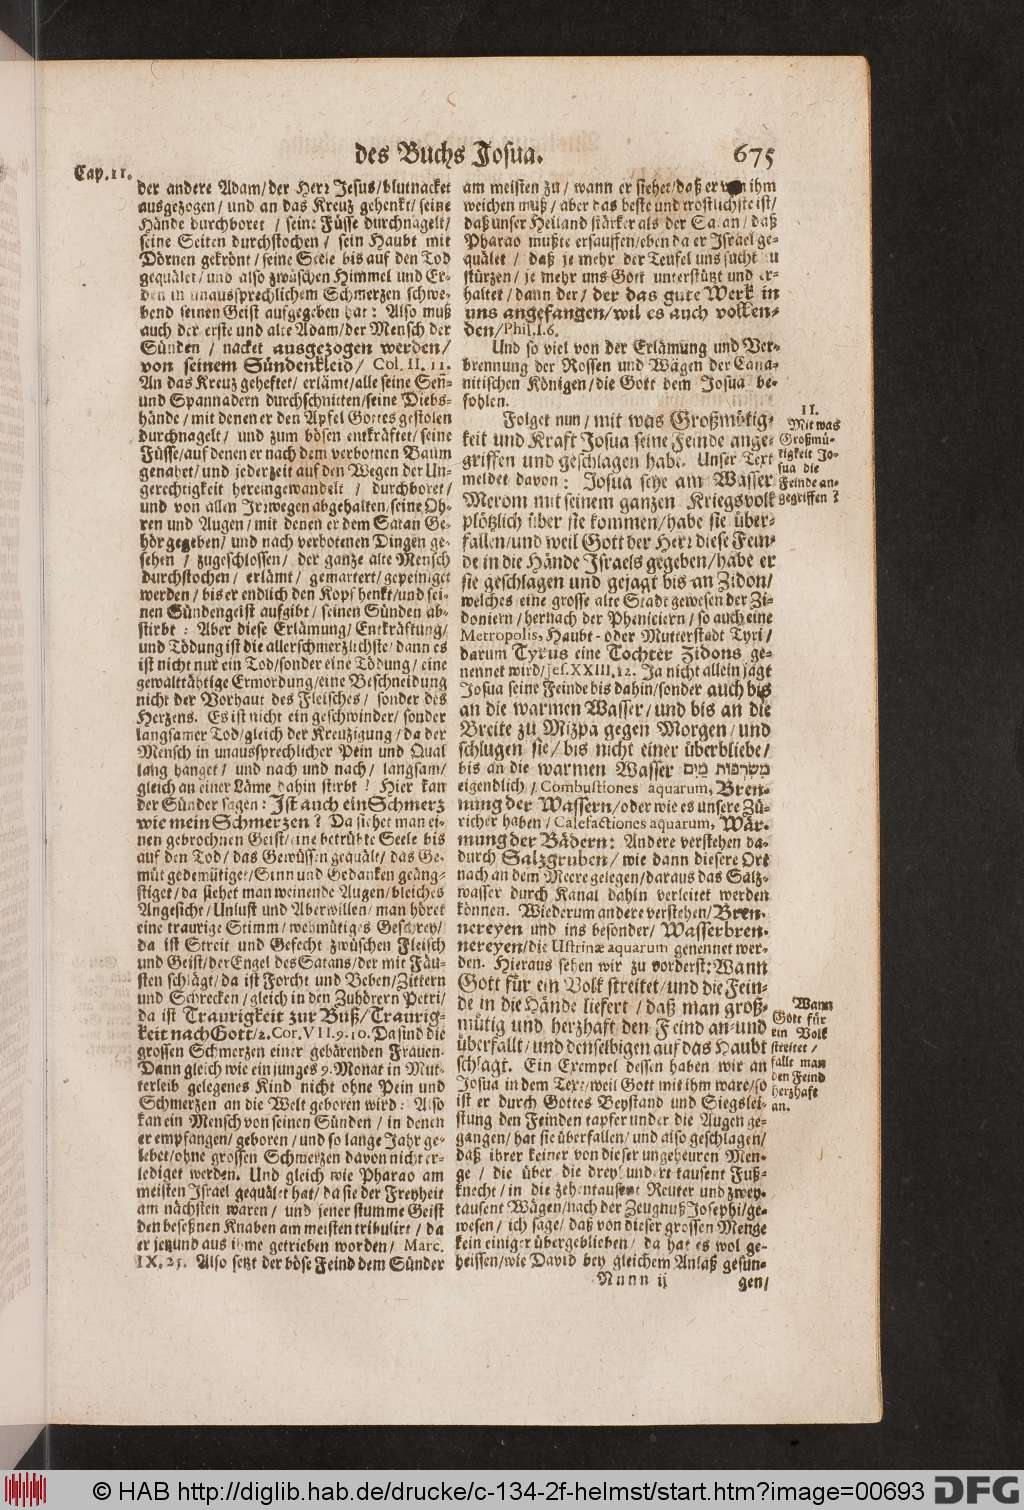 des Buchs Josua. 675
Cap. 11.
der andere Adam/ der Herr Jesus/ blutnacket
ausgezogen/ und an das Kreuz gehenkt/ seine
Hände durchboret / seine Füsse durchnagelt/
seine Seiten durchstochen / sein Haubt mit
Dörnen gekrönt/ seine Seele bis auf den Tod
gequälet/ und also zwüschen Himmel und Er-
den in unaussprechlichem Schmerzen schwe-
bend seinen Geist aufgegeben hat: Also muß
auch der erste und alte Adam/ der Mensch der
Sünden / nacket ausgezogen werden/
von seinem Sündenkleid/ Col. II. 11.
An das Kreuz geheftet/ erlämt/ alle seine Señ-
und Spannadern durchschnitten/ seine Diebs-
hände/ mit denen er den Apfel Gottes gestolen
durchnagelt/ und zum bösen entkräftet/ seine
Füsse/ auf denen er nach dem verbotnen Baum
genahet/ und jederzeit auf den Wegen der Un-
gerechtigkeit hereingewandelt / durchboret/
und von allen Irrwegen abgehalten/ seine Oh-
ren und Augen/ mit denen er dem Satan Ge-
hör gegeben/ und nach verbotenen Dingen ge-
sehen / zugeschlossen/ der ganze alte Mensch
durchstochen/ erlämt/ gemartert/ gepeiniget
werden/ bis er endlich den Kopf henkt/ und sei-
nen Sündengeist aufgibt/ seinen Sünden ab-
stirbt: Aber diese Erlämung/ Entkräftung/
und Tödung ist die allerschmerzlichste/ dann es
ist nicht nur ein Tod/ sonder eine Tödung/ eine
gewalttähtige Ermordung/ eine Beschneidung
nicht der Vorhaut des Fleisches/ sonder des
Herzens. Es ist nicht ein geschwinder/ sonder
langsamer Tod/ gleich der Kreuzigung/ da der
Mensch in unaussprechlicher Pein und Qual
lang hanget/ und nach und nach/ langsam/
gleich an einer Läme dahin stirbt! Hier kan
der Sünder sagen: Ist auch ein Schmerz
wie mein Schmerzen? Da sihet man ei-
nen gebrochnen Geist/ eine betrübte Seele bis
auf den Tod/ das Gewüssen gequält/ das Ge-
müt gedemütiget/ Sinn und Gedanken geäng-
stiget/ da siehet man weinende Augen/ bleiches
Angesicht/ Unlust und Aberwillen/ man höret
eine traurige Stimm/ wehmütiges Geschrey/
da ist Streit und Gefecht zwüschen Fleisch
und Geist/ der Engel des Satans/ der mit Fäu-
sten schlägt/ da ist Forcht und Beben/ Zittern
und Schrecken/ gleich in den Zuhörern Petri/
da ist Traurigkeit zur Buß/ Traurig-
keit nach Gott/ 2. Cor. VII. 9. 10. Da sind die
grossen Schmerzen einer gebärenden Frauen.
Dann gleich wie ein junges 9. Monat in Mut-
terleib gelegenes Kind nicht ohne Pein und
Schmerzen an die Welt geboren wird: Also
kan ein Mensch von seinen Sünden/ in denen
er empfangen/ geboren/ und so lange Jahr ge-
lebet/ ohne grossen Schmerzen davon nicht er-
lediget werden. Und gleich wie Pharao am
meisten Israel gequälet hat/ da sie der Freyheit
am nächsten waren/ und jener stumme Geist
den beseßnen Knaben am meisten tribulirt/ da
er jetzund aus ihme getrieben worden/ Marc.
IX. 25. Also setzt der böse Feind dem Sünder
am meisten zu/ wann er stehet/ daß er von ihm
weichen muß/ aber das beste und trostlichste ist/
daß unser Heiland stärker als der Satan/ daß
Pharao mußte ersauffen/ eben da er Israel ge-
quälet / daß je mehr der Teufel uns sucht zu
stürzen/ je mehr uns Gott unterstützt und er-
haltet/ dann der/ der das gute Werk in
uns angefangen/ wil es auch vollen-
den/ Phil. I. 6.
Und so viel von der Erlämung und Ver-
brennung der Rossen und Wägen der Cana-
nitischen Königen/ die Gott dem Josua be-
fohlen.
Folget nun/ mit was Großmütig-
keit und Kraft Josua seine Feinde ange-
griffen und geschlagen habe. Unser Text
meldet davon: Josua seye am Wasser
Merom mit seinem ganzen Kriegsvolk
plötzlich über sie kommen/ habe sie über-
fallen/ und weil Gott der Herr diese Fein-
de in die Hände Israels gegeben/ habe er
sie geschlagen und gejagt bis an Zidon/
welches eine grosse alte Stadt gewesen der Zi-
doniern/ hernach der Pheniciern/ so auch eine
Metropolis, Haubt- oder Mutterstadt Tyri/
darum Tyrus eine Tochter Zidons ge-
nennet wird/ Jes. XXIII. 12. Ja nicht allein jagt
Josua seine Feinde bis dahin/ sonder auch bis
an die warmen Wasser/ und bis an die
Breite zu Mizpa gegen Morgen/ und
schlugen sie/ bis nicht einer überbliebe/
bis an die warmen Wasser משרפות מים
eigendlich/ Combustiones aquarum, Bren-
nung der Wassern/ oder wie es unsere Zü-
richer haben/ Calefactiones aquarum, Wär-
mung der Bädern: Andere verstehen da-
durch Salzgruben/ wie dann diesere Ort
nach an dem Meere gelegen/ daraus das Salz-
wasser durch Kanal dahin verleitet werden
können. Wiederum andere verstehen/ Bren-
nereyen und ins besonder/ Wasserbren-
nereyen/ die Ustrinæ aquarum genennet wer-
den. Hieraus sehen wir zu vorderst: Wann
Gott für ein Volk streitet/ und die Fein-
de in die Hände liefert/ daß man groß-
mütig und herzhaft den Feind an- und
überfallt/ und denselbigen auf das Haubt
schlagt. Ein Exempel dessen haben wir an
Josua in dem Text/ weil Gott mit ihm ware/ so
ist er durch Gottes Beystand und Siegslei-
stung den Feinden tapfer under die Augen ge-
gangen/ hat sie überfallen/ und also geschlagen/
daß ihrer keiner von dieser ungeheuren Men-
ge / die über die dreyhundert tausent Fuß-
knecht/ in die zehentausent Reuter und zwey-
tausent Wägen/ nach der Zeugnuß Josephi/ ge-
wesen/ ich sage/ daß von dieser grossen Menge
kein einiger übergeblieben/ da hat es wol ge-
heissen/ wie David bey gleichem Anlaß gesun-
Nnnn ij gen/
11.
Mit was
Großmü-
tigkeit Jo-
sua die
Feinde an-
gegriffen?
Wann
Gott für
ein Volk
streitet/
fallt man
den Feind
herzhaft
an.
© HAB http://diglib.hab.de/drucke/c-134-2f-helmst/start.htm?image=00693
DFG